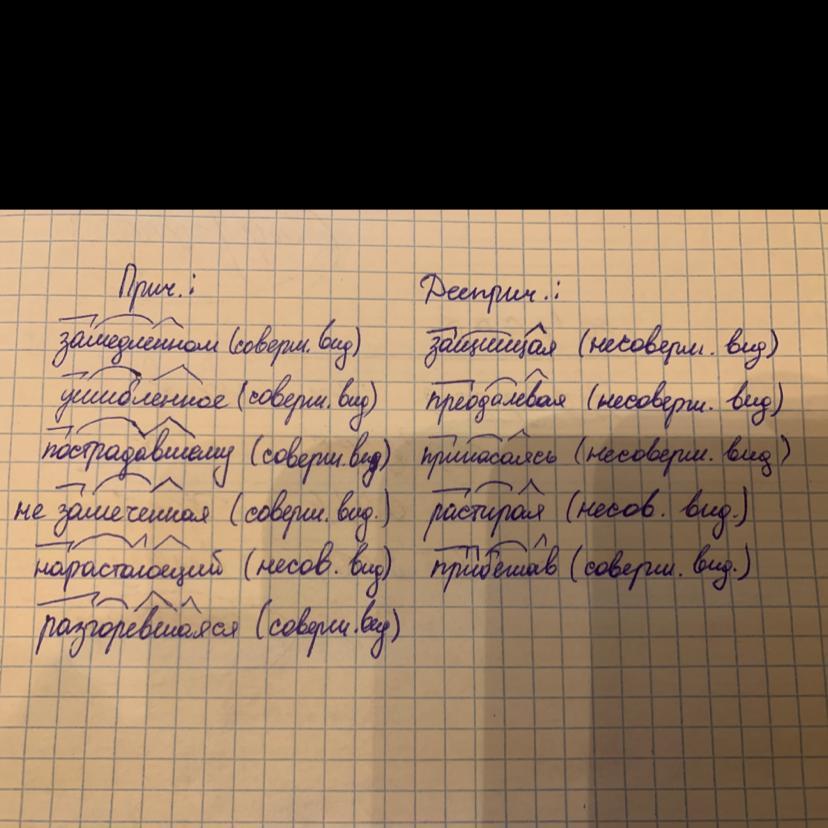 Прич.:
замедленном (соверш. вид)
ушибленное (соверш. вид)
пострадавшему (соверш. вид)
не замеченная (соверш. вид.)
нарастающий (несов. вид)
разгоревшаяся (соверш. вид)
Дееприч.:
защищая (несоверш. вид)
преодолевая (несоверш. вид)
прикасаясь (несоверш. вид)
растирая (несов. вид.)
прибежав (соверш. вид.)